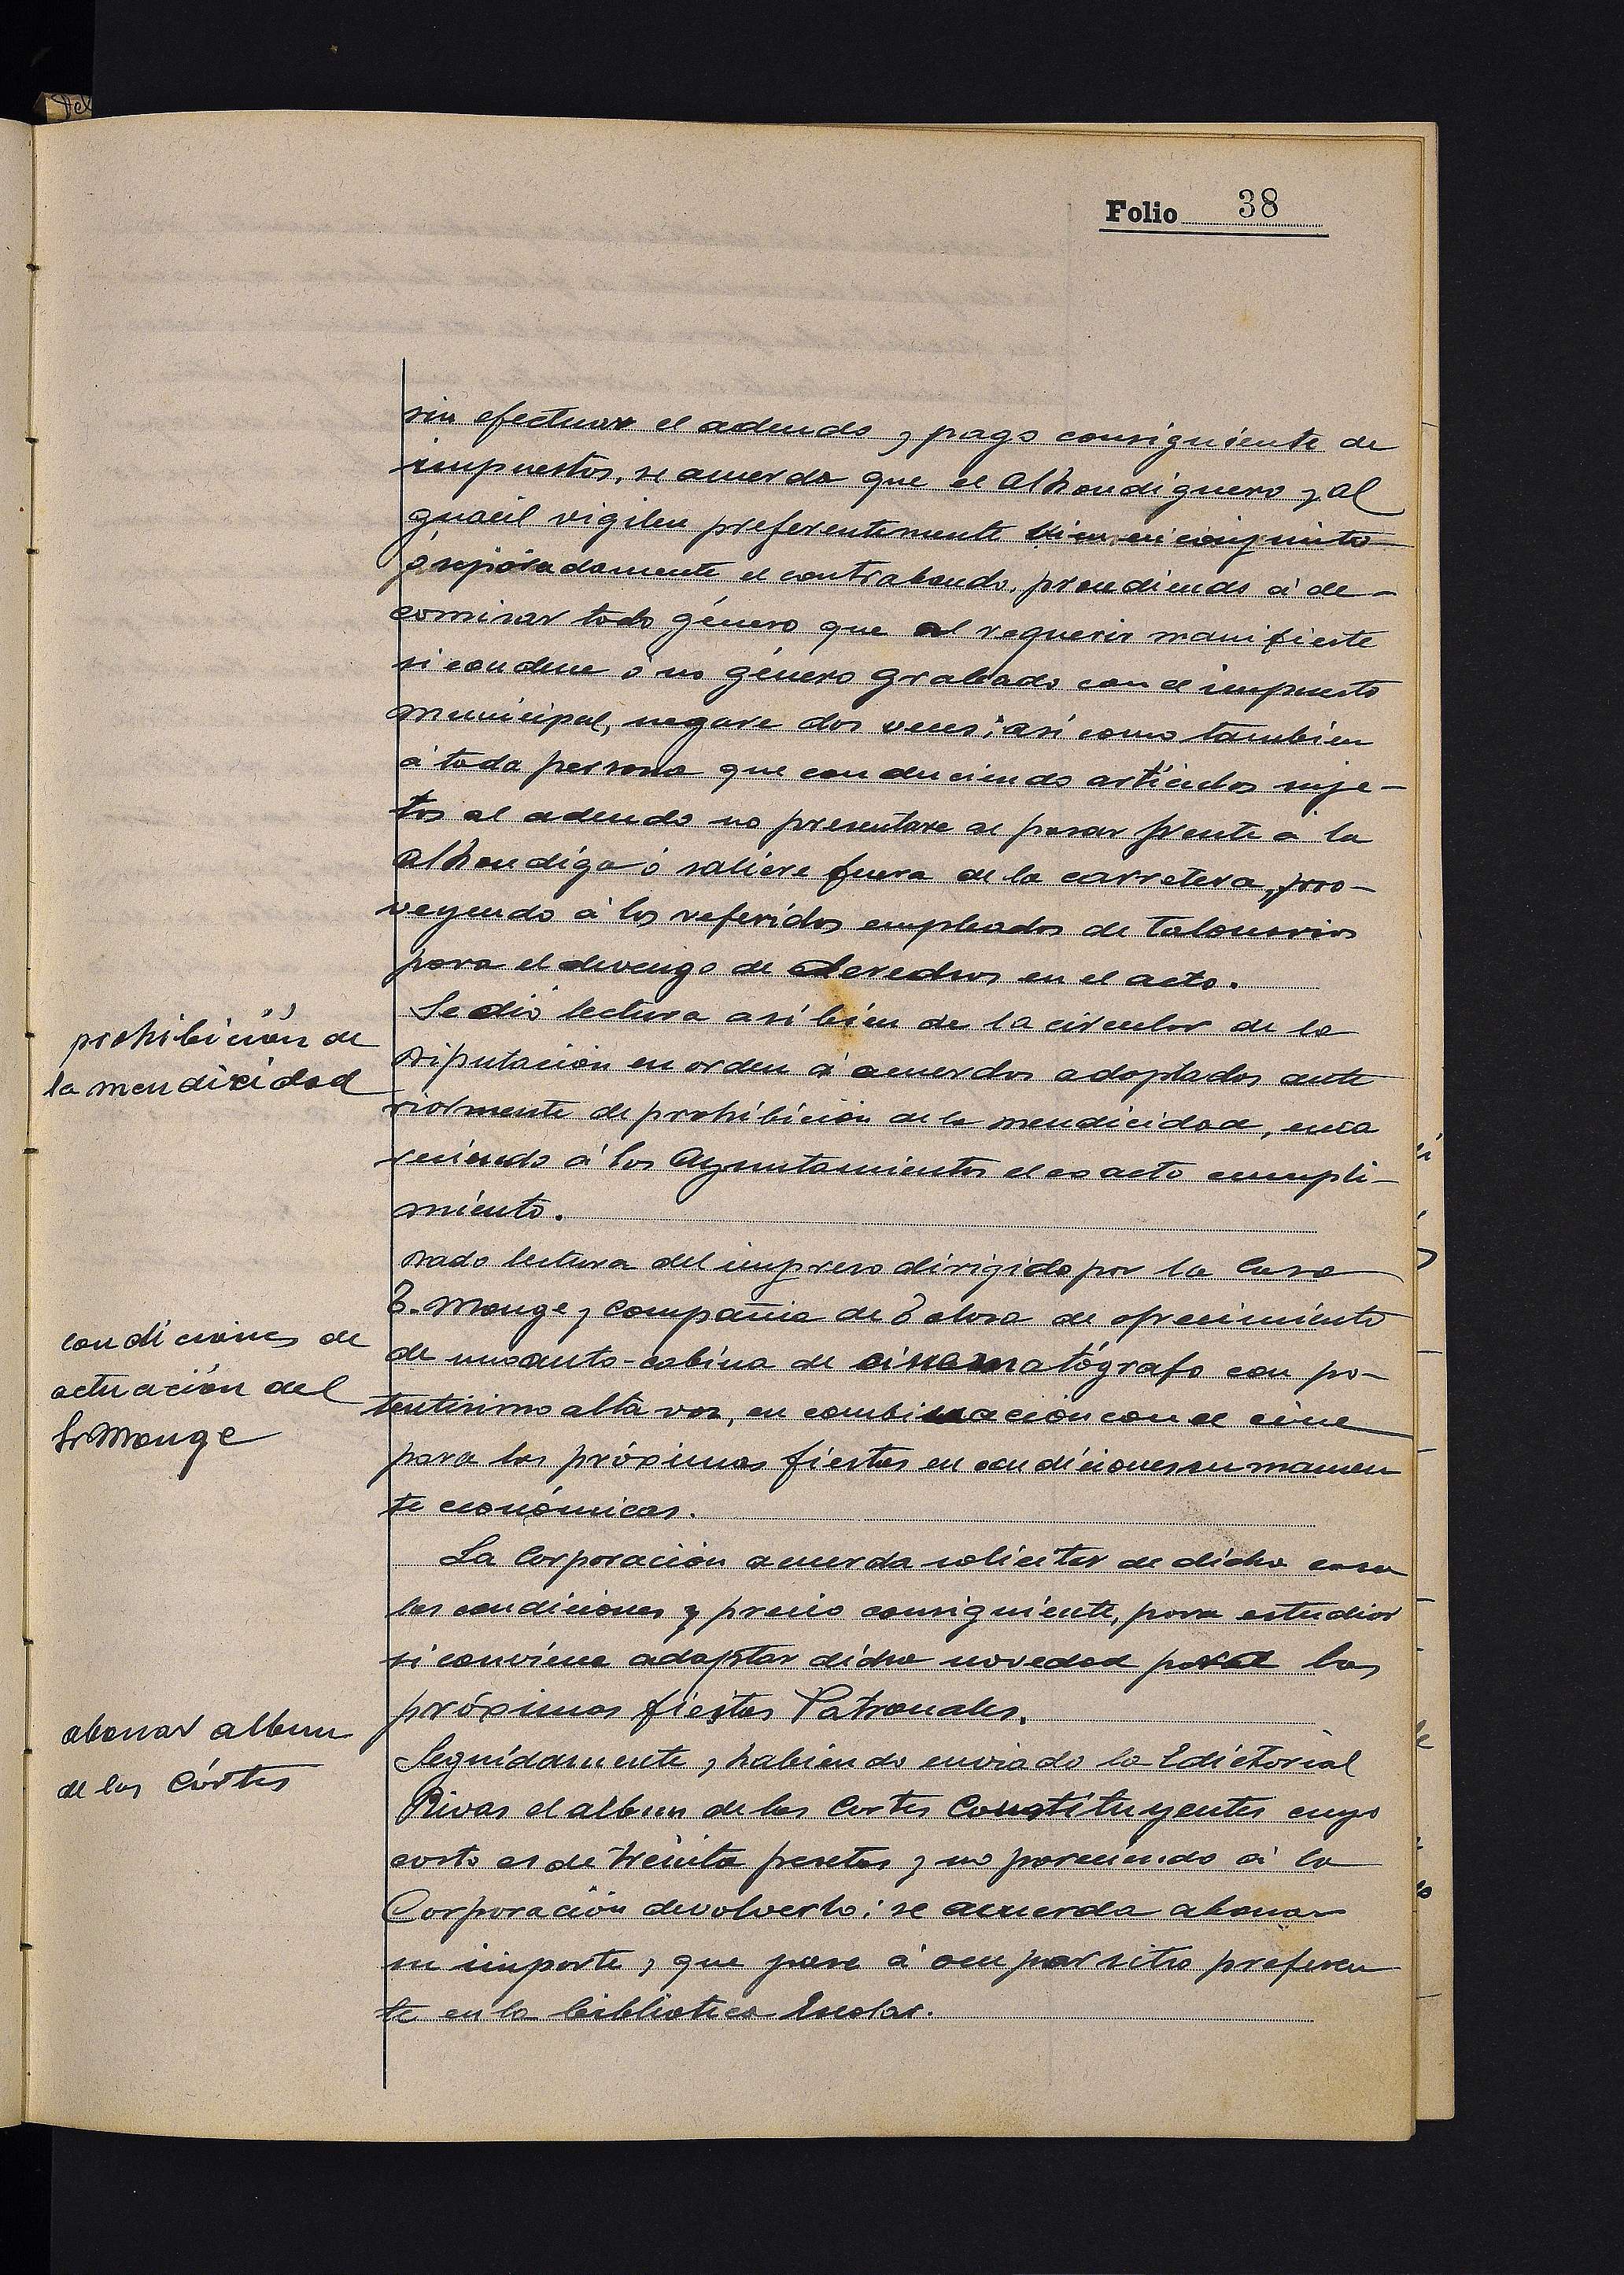 Folio 38
sin efectuar el adeudo y pago consiguiente de
impuestos, se acuerda que el Alhondiguero y al
guacil vigilen preferentemente bien en conjunto
ó separadamente el contrabando, procediendo á de-
comisar todo género que al requerir manifieste
si conduce ó no género grabado con el impuesto
municipal, negare dos veces; así como también
á toda persona que conduciendo artículos suje-
tos al adeudo no presentare al pasar frente á la
Alhondiga ó saliere fuera de la carretera, pro-
veyendo á los referidos empleados de talonarios
para el devengo de derechos en el acto.
prohibición de
la mendicidad
Se dió lectura así bien de la circular de la
Diputación en orden á acuerdos adoptados ante
riormente de prohibición de la mendicidad, enca
reciendo á los Ayuntamientos el exacto cumpli-
miento.
condiciones de
actuación del
Sr Monge
Dado lectura del impreso dirigido por la Casa
E. Monge y Compañia de Tolosa de ofrecimiento
de una auto-cabina de cinematógrafo con po-
tentisimo alta voz, en combinación con el cine
para las próximas fiestas en condiciones sumamen
te económicas.
La Corporación acuerda solicitar de dicha casa
las condiciones y precio consiguiente, para estudiar
si conviene adaptar dicha novedad para las
próximas fiestas Patronales.
abonar album
de las Córtes
Seguidamente y habiendo enviado la Edictorial
Rivas el album de las Cortes Constituyentes cuyo
costo es de treinta pesetas y no pareciendo á la
Corporación devolverlo; se acuerda abonar
su importe y que pase á ocupar sitio preferen
te en la biblioteca Escolar.